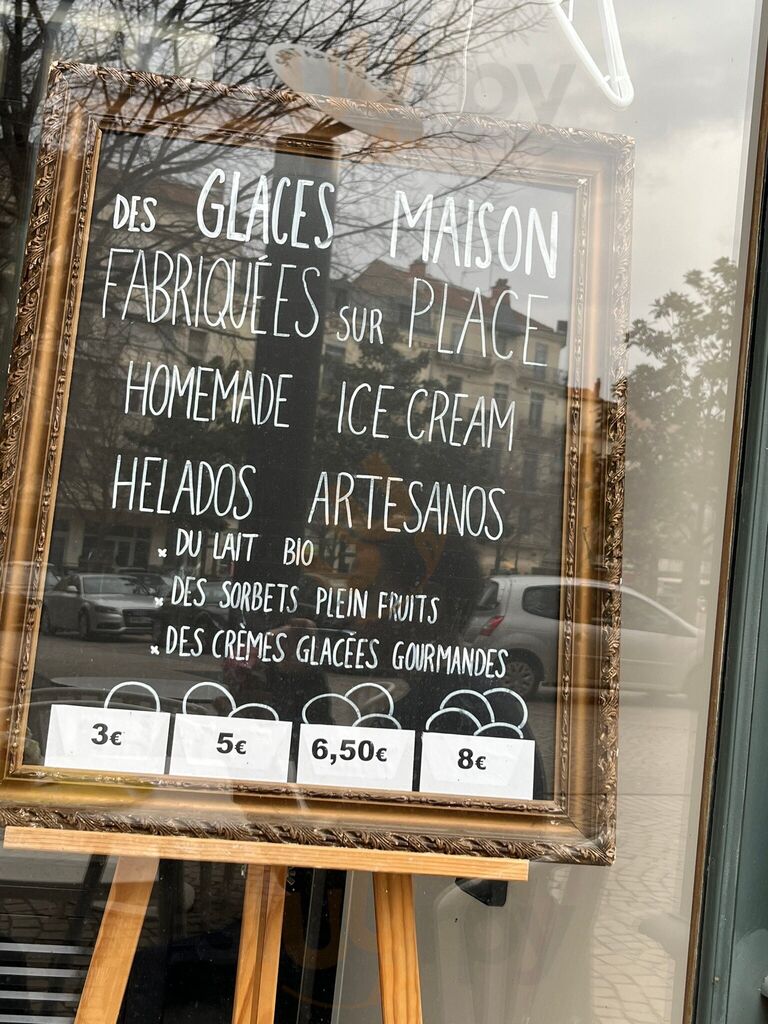 DES GLACES MAISON
FABRIQUÉES SUR PLACE
HOMEMADE ICE CREAM
HELADOS ARTESANOS
x DU LAIT BIO
x DES SORBETS PLEIN FRUITS
x DES CRÈMES GLACÉES GOURMANDES
3€ 5€ 6,50€ 8€